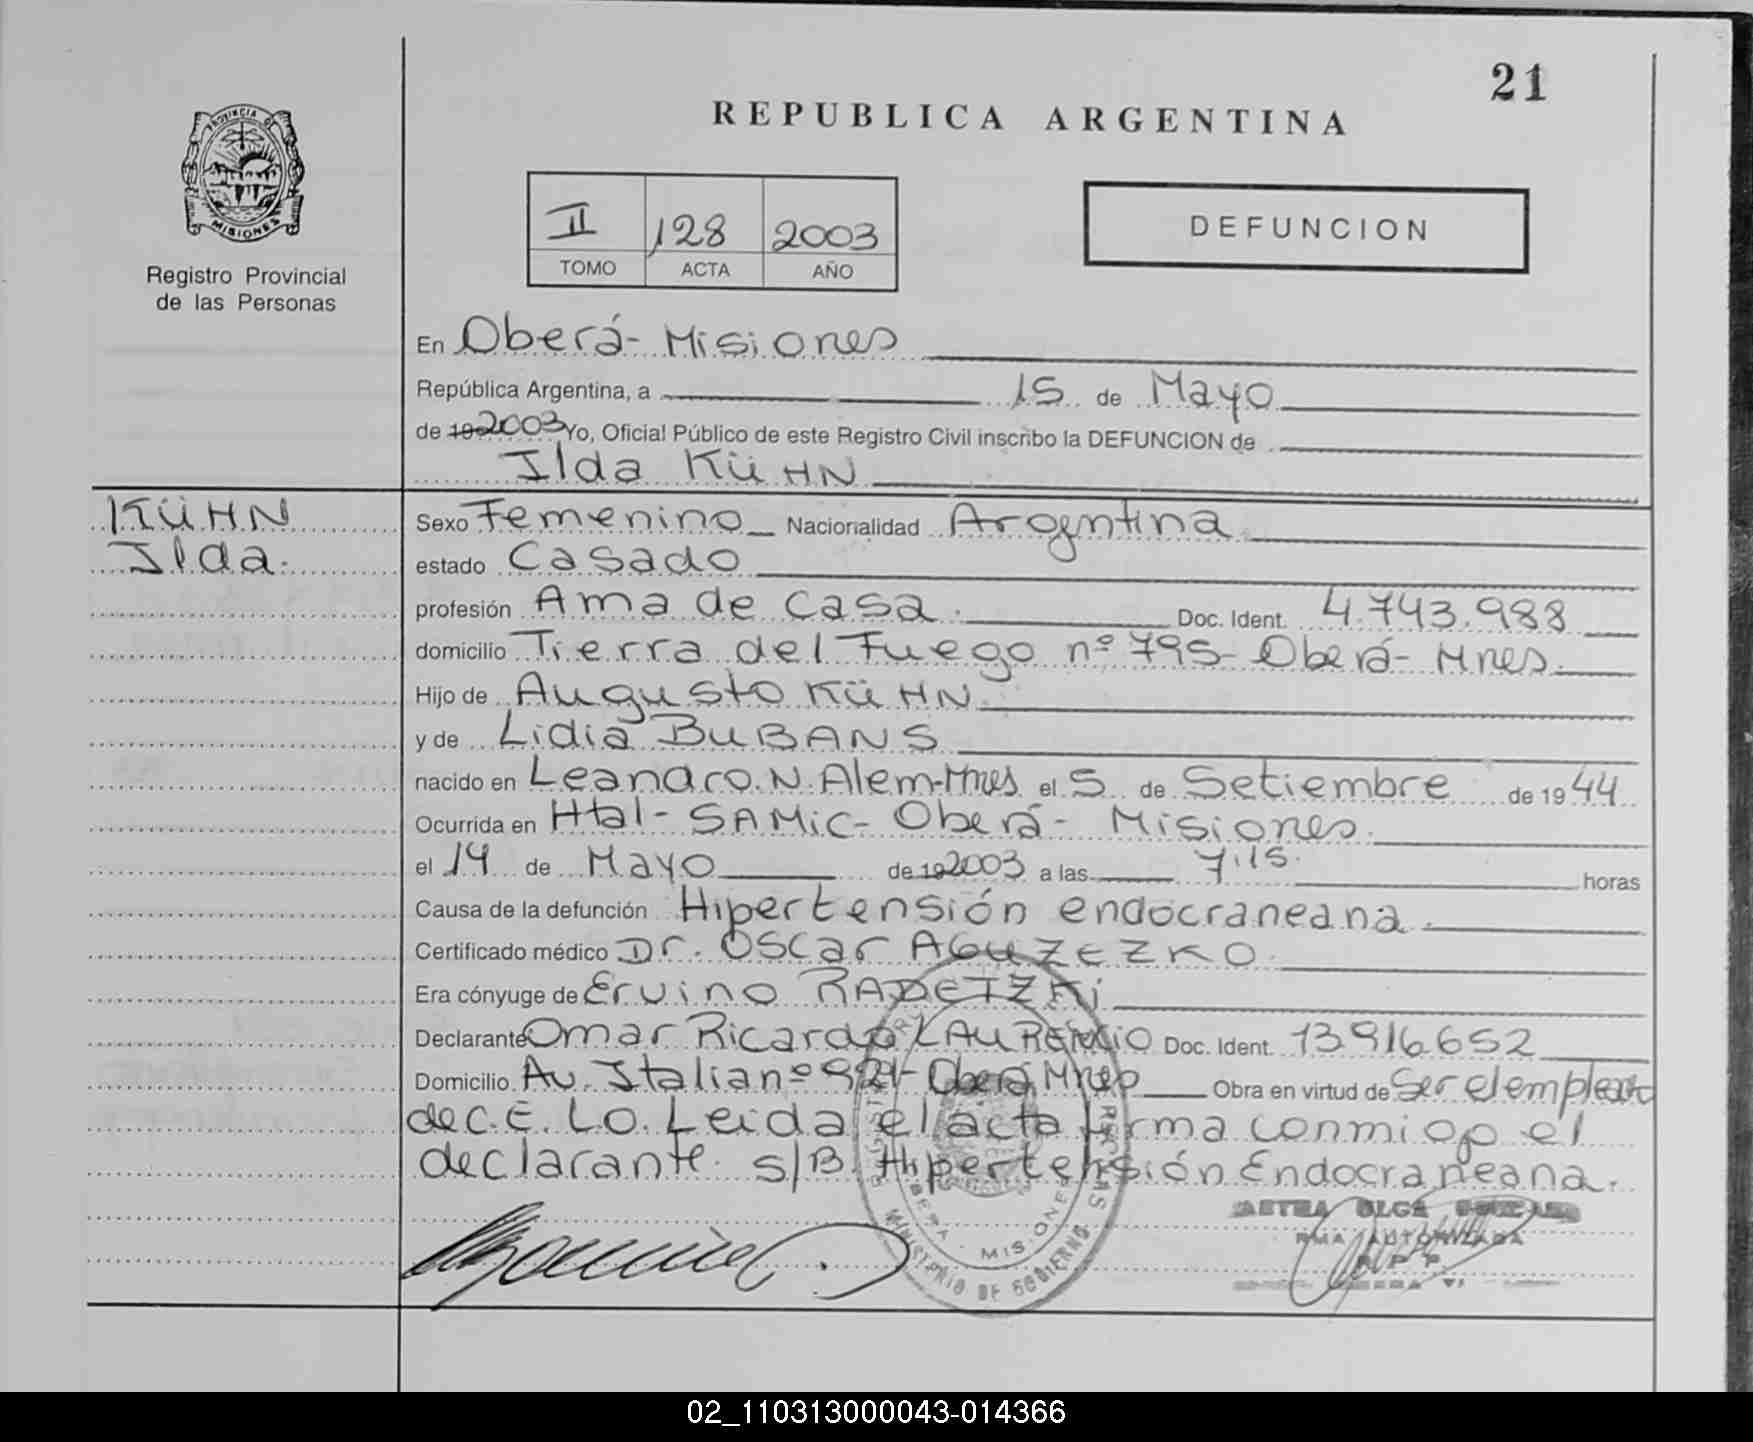 21
REPUBLICA ARGENTINA
PROVINCIA DE
MISIONES
Registro Provincial
de las Personas
II 128 2003
TOMO ACTA AÑO
DEFUNCION
En Oberá - Misiones
República Argentina, a 15 de Mayo
de 192003 Yo, Oficial Público de este Registro Civil inscribo la DEFUNCION de
Ilda KÜHN
KÜHN
Ilda.
Sexo Femenino Nacionalidad Argentina
estado Casado
profesión Ama de casa. Doc. Ident. 4.743.988
domicilio Tierra del Fuego nº 795 - Oberá - Mnes.
Hijo de Augusto KÜHN
y de Lidia BUBANS
nacido en Leandro. N. Alem-Mnes el 5 de Setiembre de 1944
Ocurrida en Htal - SAMIC - Oberá - Misiones.
el 14 de Mayo de 192003 a las 7.15. horas
Causa de la defunción Hipertensión endocraneana.
Certificado médico Dr. Oscar AGUZEZKO.
Era cónyuge de Ervino RADETZKi
Declarante Omar Ricardo LAURENCIO Doc. Ident. 13916652
Domicilio Av. Italia nº Oberá Mnes Obra en virtud de Ser el empleado
de C.E.L.O. Leida el acta firma conmigo el
declarante. S/B. Hipertensión Endocraneana.
MINISTERIO DE GOBIERNO
MISIONES
OLGA
FIRMA AUTORIZADA
R P P
02_110313000043-014366